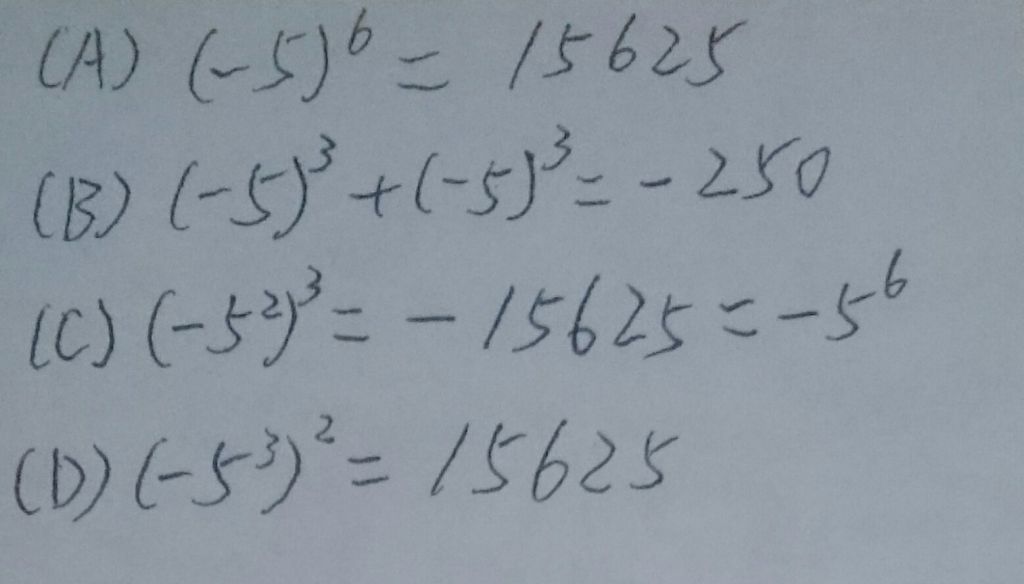 (A) (-5)⁶ = 15625
(B) (-5)³ + (-5)³ = -250
(C) (-5²)³ = -15625 = -5⁶
(D) (-5³)² = 15625